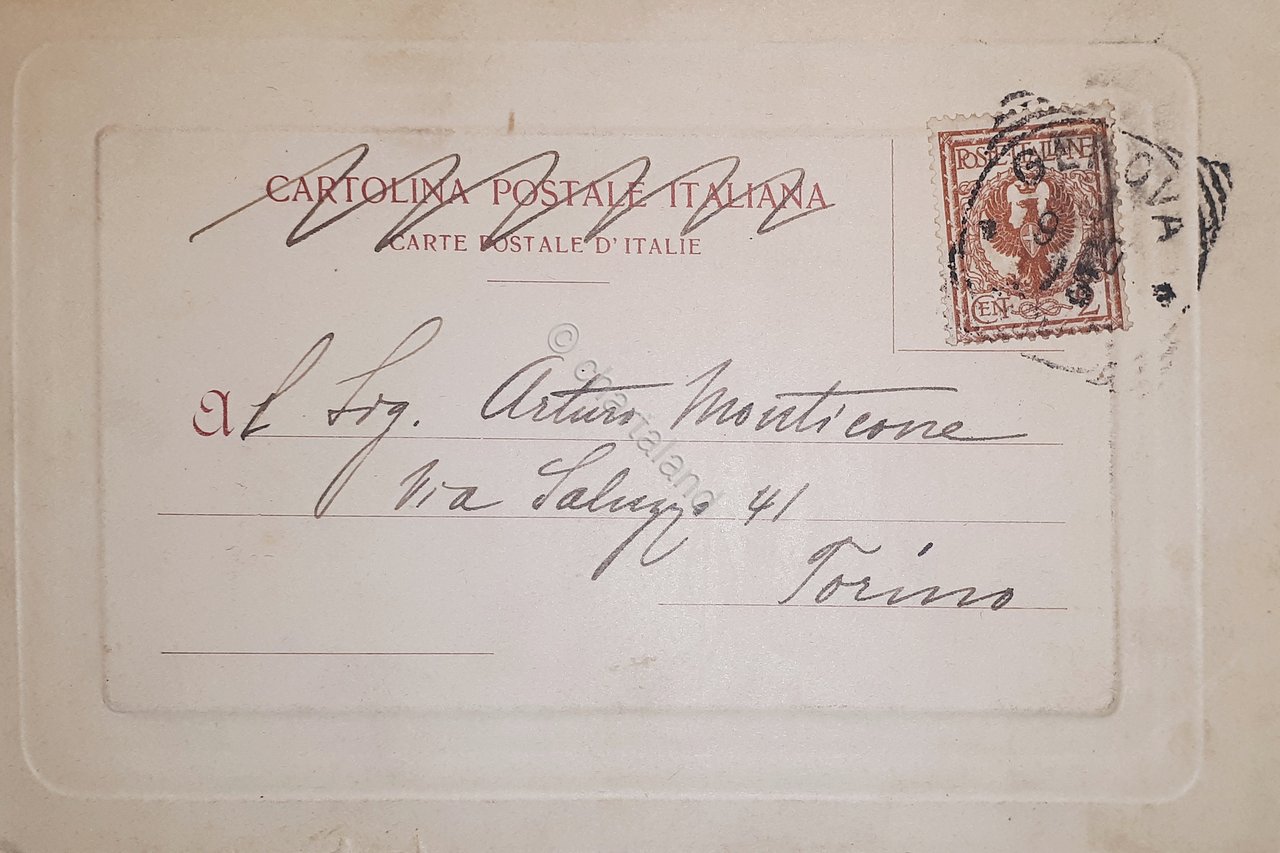 CARTOLINA POSTALE ITALIANA
CARTE POSTALE D'ITALIE
POSTE ITALIANE
CENT. 2
GENOVA
9
Al Sig. Arturo Monticone
Via Saluzzo 41
Torino
© chartaland